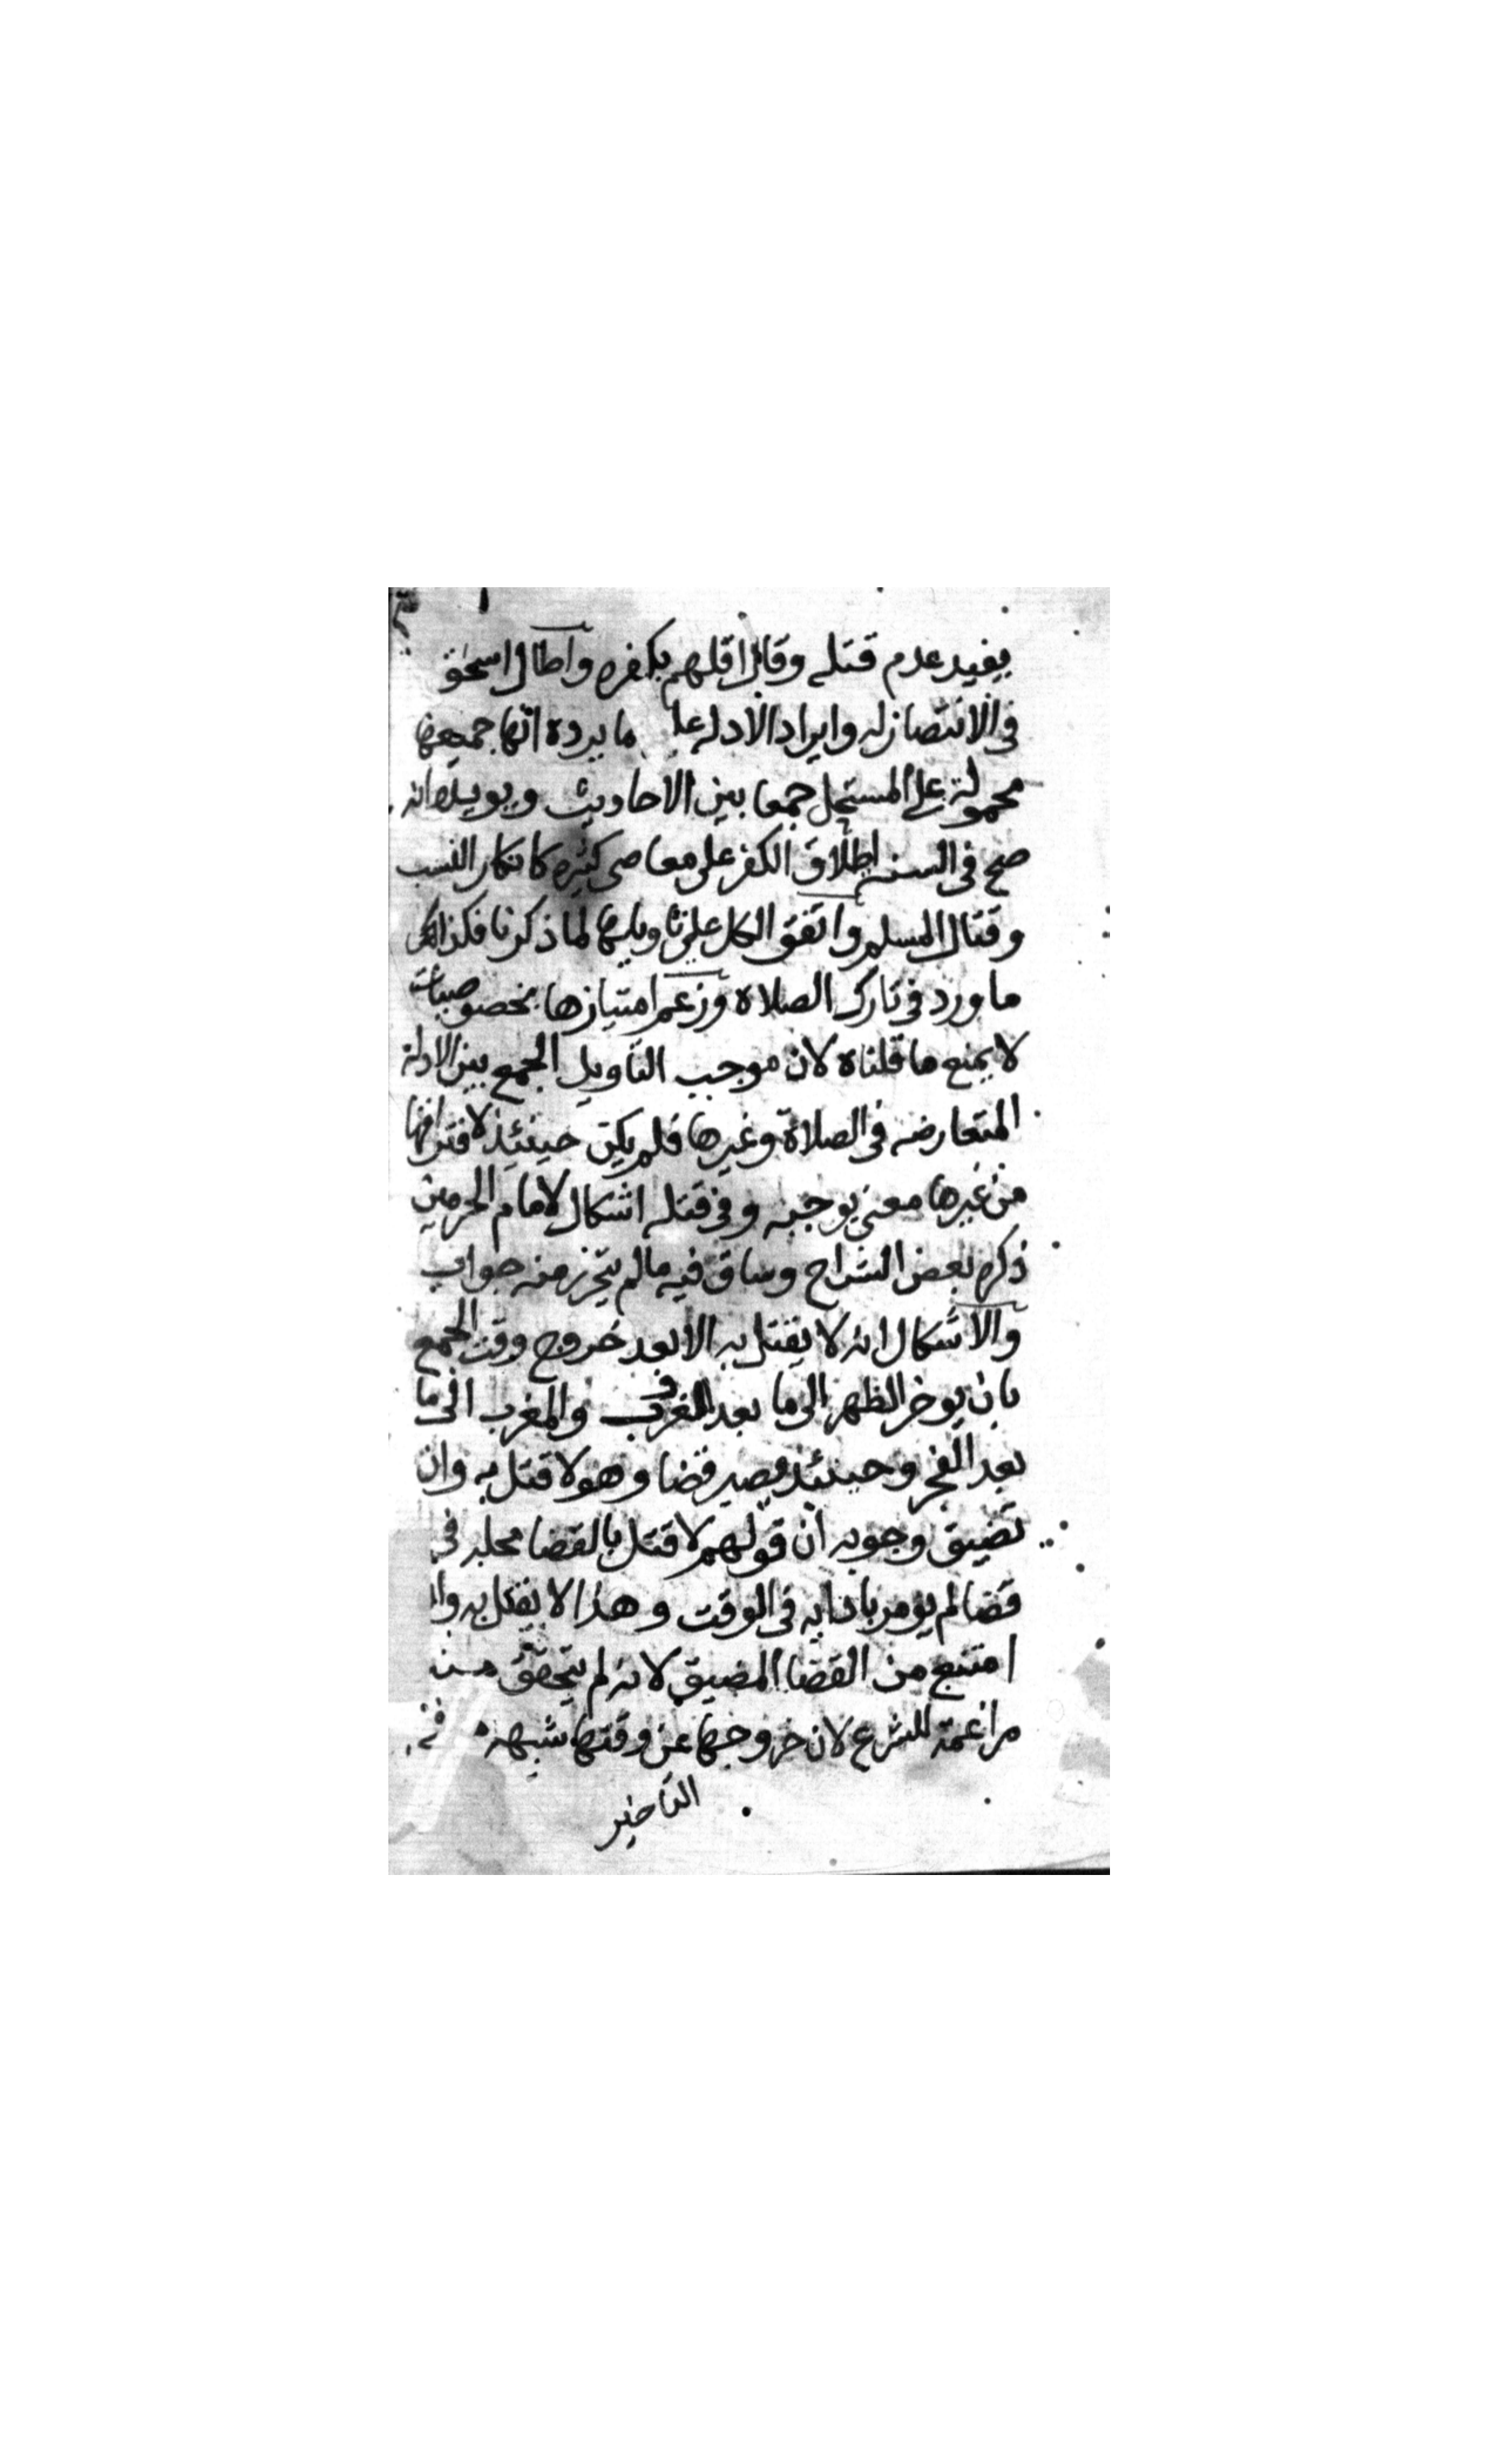 يفيد عدم قتله وقال اقلهم بكفره واطال اسحق
فى الانتصار له وايراد الادله على ما يرده انها جميعها
محمولة على المستحل جمعا بين الاحاديث ويويده انه
صح فى السنه اطلاق الكفر على معاصى كثيره كانكار النسب
وقتال المسلم واتفق الكل على تاويلها لما ذكرنا فكذا
ما ورد فى تارك الصلاه وزعم امتيازها بخصوصيات
لا يمنع ما قلناه لان موجب التاويل الجمع بين الادلة
المتعارضه فى الصلاة وغيرها فلم يكن حينئذ لافتراقها
من غيرها معنى يوجبه وفى قتله اشكال لامام الحرمين
ذكره بعض الشراح وساق فيه ما لم يتحرز منه جواب
والاشكال انه لا يقتل به الا بعد خروج وقت الجمع
بان يوخر الظهر الى ما بعد والمغرب الى ما
بعد الفجر وحينئذ يصير قضا وهو لا قتل به وان
تضيق وجوبه ان قولهم لا قتل بالقضا محله فى
قضا لم يومر بادايه فى الوقت وهذا لا يقتل به وان
امتنع من القضا المضيق لانه لم يتحقق منه
مراغمة للشرع لان خروجها عن وقتها شبهه فى
التاخير